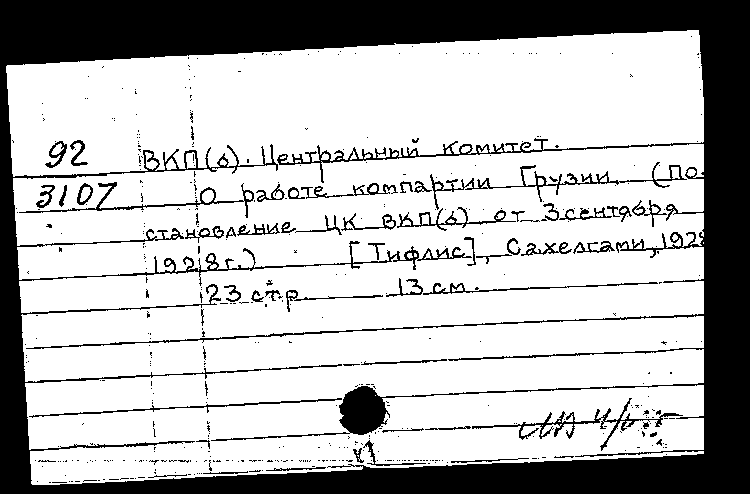 92
3107
ВКП(б). Центральный комитет.
О работе компартии Грузии. (По-
становление ЦК ВКП(б) от 3 сентября
1928 г.) [Тифлис], Сахелгами, 1928
23 стр. 13 см.